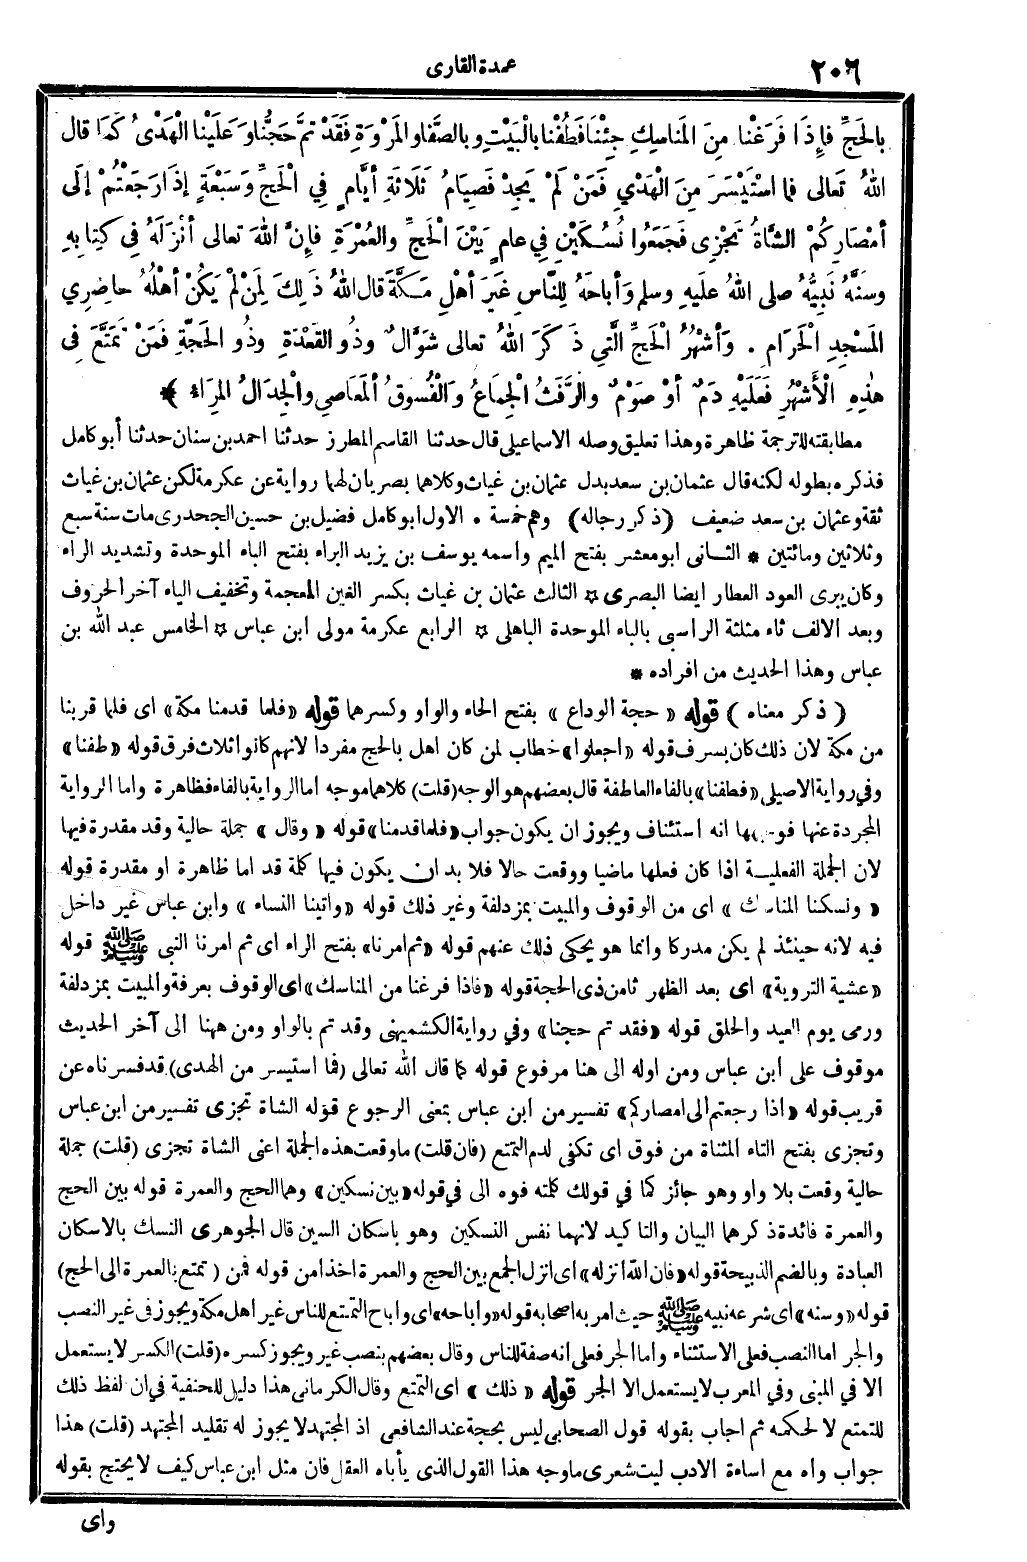 ٢٠٦
عمدة القارى
بِالحَجِّ فَإِذَا فَرَغْنَا مِنَ المَناسِكِ جِئْنَا فَطُفْنَا بِالْبَيْتِ وبِالصَّفَا والمَرْوَةِ فَقَدْ تمَّ حَجُّنَا وَعَلَيْنَا الْهَدْىُ كَمَا قال
اللهُ تَعَالى فَما اسْتَيْسَرَ مِنَ الْهَدْيِ فَمَنْ لَمْ يَجِدْ فَصِيَامُ ثَلاَثَةِ أَيَّامٍ فِي الْحَجِّ وَسَبْعَةٍ إذَا رَجَعْتُمْ إلَى
أمْصَارِكُمْ الشَّاةُ تَجْزِى فَجَمَعُوا نُسُكَيْنِ فِي عامٍ بَيْنَ الْحَجِّ والعُمْرَةِ فإنَّ اللهَ تعالى أنْزَلَهُ فِى كِتابِهِ
وسَنَّهُ نَبِيُّهُ صلى اللهُ علَيهِ وسلم وَأباحَهُ لِلنَّاسِ غَيرَ أهْلِ مَكَّةَ قال اللهُ ذَلِكَ لِمَنْ لَمْ يَكُنْ أهْلُهُ حاضِرِي
المَسْجِدِ الْحَرَامِ . وَأشْهُرُ الْحَجِّ الَّتِي ذَكَرَ اللهُ تعالى شَوَّالٌ وذُو القَعْدَةِ وذُو الحَجَّةِ فَمَنْ تَمَتَّعَ فِى
هٰذِهِ الْأَشْهُرِ فَعَلَيْهِ دَمٌ أوْ صَوْمٌ والرَّفَثُ الْجِمَاعُ وَالْفُسُوقُ ألْمَعَاصِى والْجِدَالُ المِرَاءُ ﴾ *
مطابقته للترجمة ظاهرة وهذا تعليق وصله الاسماعيلى قال حدثنا القاسم المطرز حدثنا احمد بن سنان حدثنا أبو كامل
فذكره بطوله لكنه قال عثمان بن سعد بدل عثمان بن غياث وكلاهما بصريان لهما رواية عن عكرمة لكن عثمان بن غياث
ثقة وعثمان بن سعد ضعيف (ذكر رجاله) وهم خمسة * الاول ابو كامل فضيل بن حسين الجحدرى مات سنة سبع
وثلاثين ومائتين * الثانى ابو معشر بفتح الميم واسمه يوسف بن يزيد البراء بفتح الباء الموحدة وتشديد الراء
وكان يبرى العود العطار ايضا البصرى * الثالث عثمان بن غياث بكسر الغين المعجمة وتخفيف الياء آخر الحروف
وبعد الالف ثاء مثلثة الراسبى بالباء الموحدة الباهلى * الرابع عكرمة مولى ابن عباس * الخامس عبد الله بن
عباس وهذا الحديث من افراده *
( ذكر معناه ) قوله « حجة الوداع » بفتح الحاء والواو وكسرهما قوله «فلما قدمنا مكة» اى فلما قربنا
من مكة لان ذلك كان بسرف قوله «اجعلوا» خطاب لمن كان اهل بالحج مفردا لانهم كانوا ثلاث فرق قوله «طفنا»
وفى رواية الاصيلى «فطفنا» بالفاء العاطفة قال بعضهم هو الوجه (قلت) كلاهما موجه اما الرواية بالفاء فظاهرة واما الرواية
المجردة عنها فوجهها انه استئناف ويجوز ان يكون جواب «فلما قدمنا» قوله « وقال » جملة حالية وقد مقدرة فيها
لان الجملة الفعلية اذا كان فعلها ماضيا ووقعت حالا فلا بد ان يكون فيها كلمة قد اما ظاهرة او مقدرة قوله
« ونسكنا المناسك » اى من الوقوف والمبيت بمزدلفة وغير ذلك قوله «واتينا النساء » وابن عباس غير داخل
فيه لانه حينئذ لم يكن مدركا وانما هو يحكى ذلك عنهم قوله «ثم امرنا» بفتح الراء اى ثم امرنا النبى ﷺ قوله
«عشية التروية» اى بعد الظهر ثامن ذى الحجة قوله «فاذا فرغنا من المناسك» اى الوقوف بعرفة والمبيت بمزدلفة
ورمى يوم العيد والحلق قوله «فقد تم حجنا» وفي رواية الكشميهنى وقد تم بالواو ومن ههنا الى آخر الحديث
موقوف على ابن عباس ومن اوله الى هنا مرفوع قوله كما قال الله تعالى (فما استيسر من الهدى) قد فسرناه عن
قريب قوله «اذا رجعتم الى امصاركم» تفسير من ابن عباس بمعنى الرجوع قوله الشاة تجزى تفسير من ابن عباس
وتجزى بفتح التاء المثناة من فوق اى تكفى لدم التمتع (فان قلت) ما وقعت هذه الجملة اعنى الشاة تجزى (قلت) جملة
حالية وقعت بلا واو وهو جائز كما في قولك كلمته فوه الى في قوله «بين نسكين» وهما الحج والعمرة قوله بين الحج
والعمرة فائدة ذكرهما البيان والتاكيد لانهما نفس النسكين وهو باسكان السين قال الجوهرى النسك بالاسكان
العبادة وبالضم الذبيحة قوله «فان الله انزله» اى انزل الجمع بين الحج والعمرة اخذا من قوله فمن ( تمتع بالعمرة الى الحج)
قوله «وسنه» اى شرعه نبيه ﷺ حيث امر به اصحابه قوله «واباحه» اى واباح التمتع للناس غير اهل مكة ويجوز فى غير النصب
والجر اما النصب فعلى الاستثناء واما الجر فعلى انه صفة للناس وقال بعضهم بنصب غير ويجوز كسره (قلت) الكسر لا يستعمل
الا في المبنى وفي المعرب لا يستعمل الا الجر قوله « ذلك » اى التمتع وقال الكرمانى هذا دليل للحنفية في ان لفظ ذلك
للتمتع لا لحكمه ثم اجاب بقوله قول الصحابى ليس بحجة عند الشافعى اذ المجتهد لا يجوز له تقليد المجتهد (قلت) هذا
جواب واه مع اساءة الادب ليت شعرى ما وجه هذا القول الذى يأباه العقل فان مثل ابن عباس كيف لا يحتج بقوله
واى